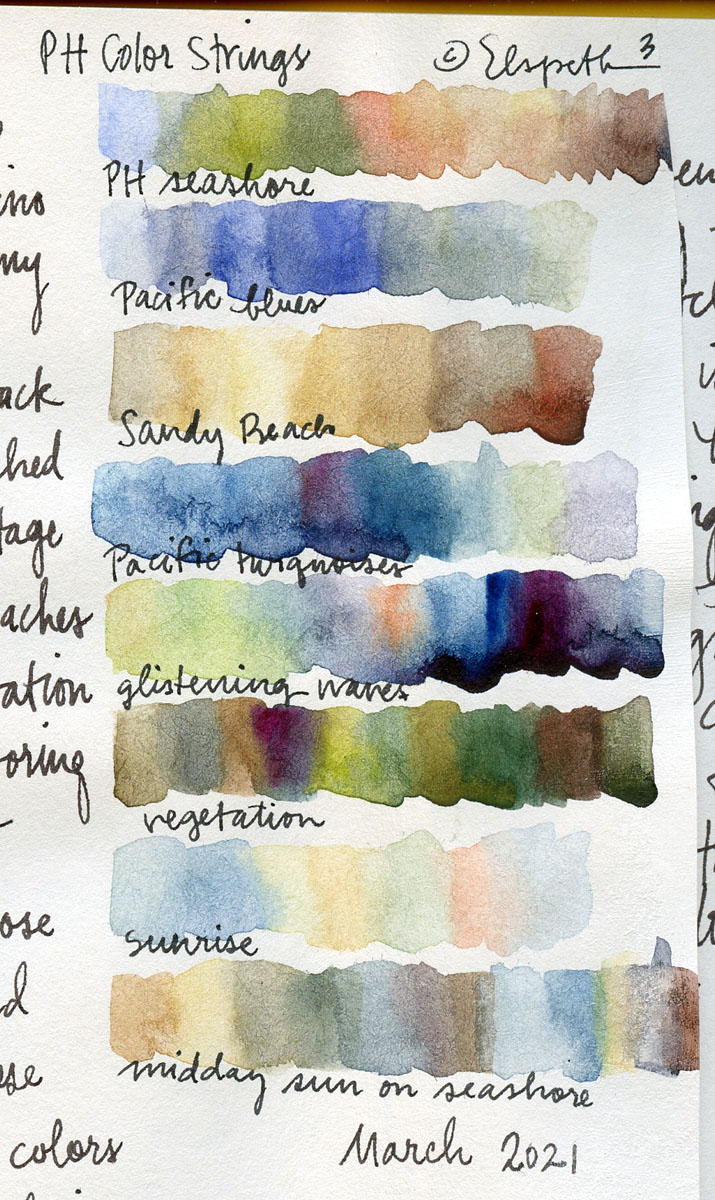 PH Color Strings © Elspeth 3
PH seashore
Pacific blues
Sandy Beach
Pacific turquoises
glistening waves
vegetation
sunrise
midday sun on seashore
March 2021
my
ack
hed
tage
aches
ation
oring
ose
d
colors